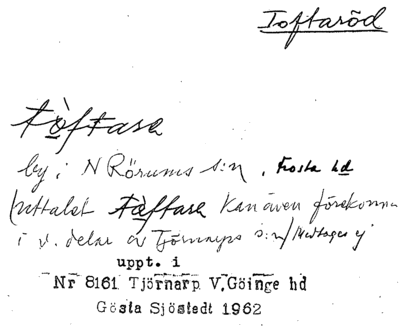 Toftaröd
tòftare
by i N Rörums s:n, Frosta hd
(uttalet tòftare kan även förekomma
i v. delar av Tjörnarps s:n/ Medtages ej
uppt. i
Nr 8161 Tjörnarp V. Göinge hd
Gösta Sjöstedt 1962